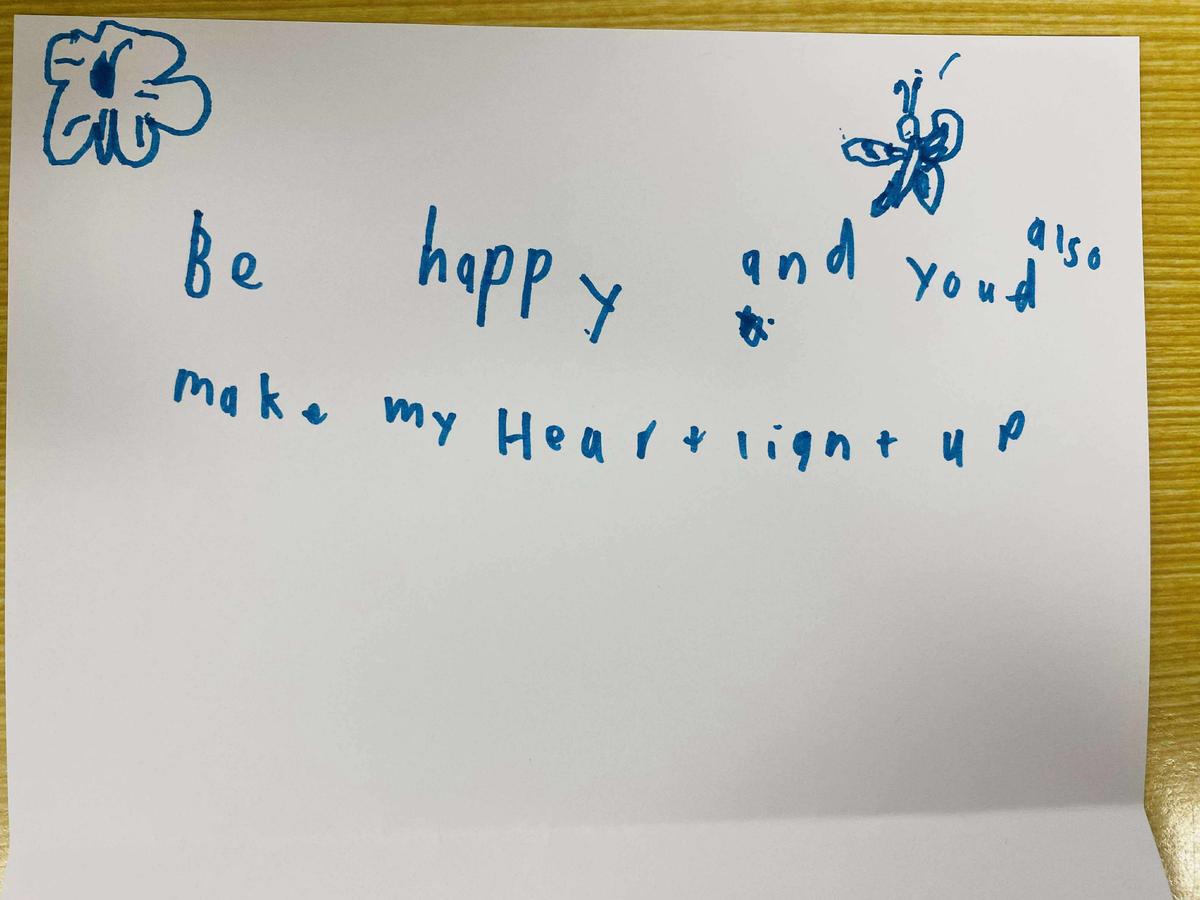 Be happy and youd also
make my Heart lignt up